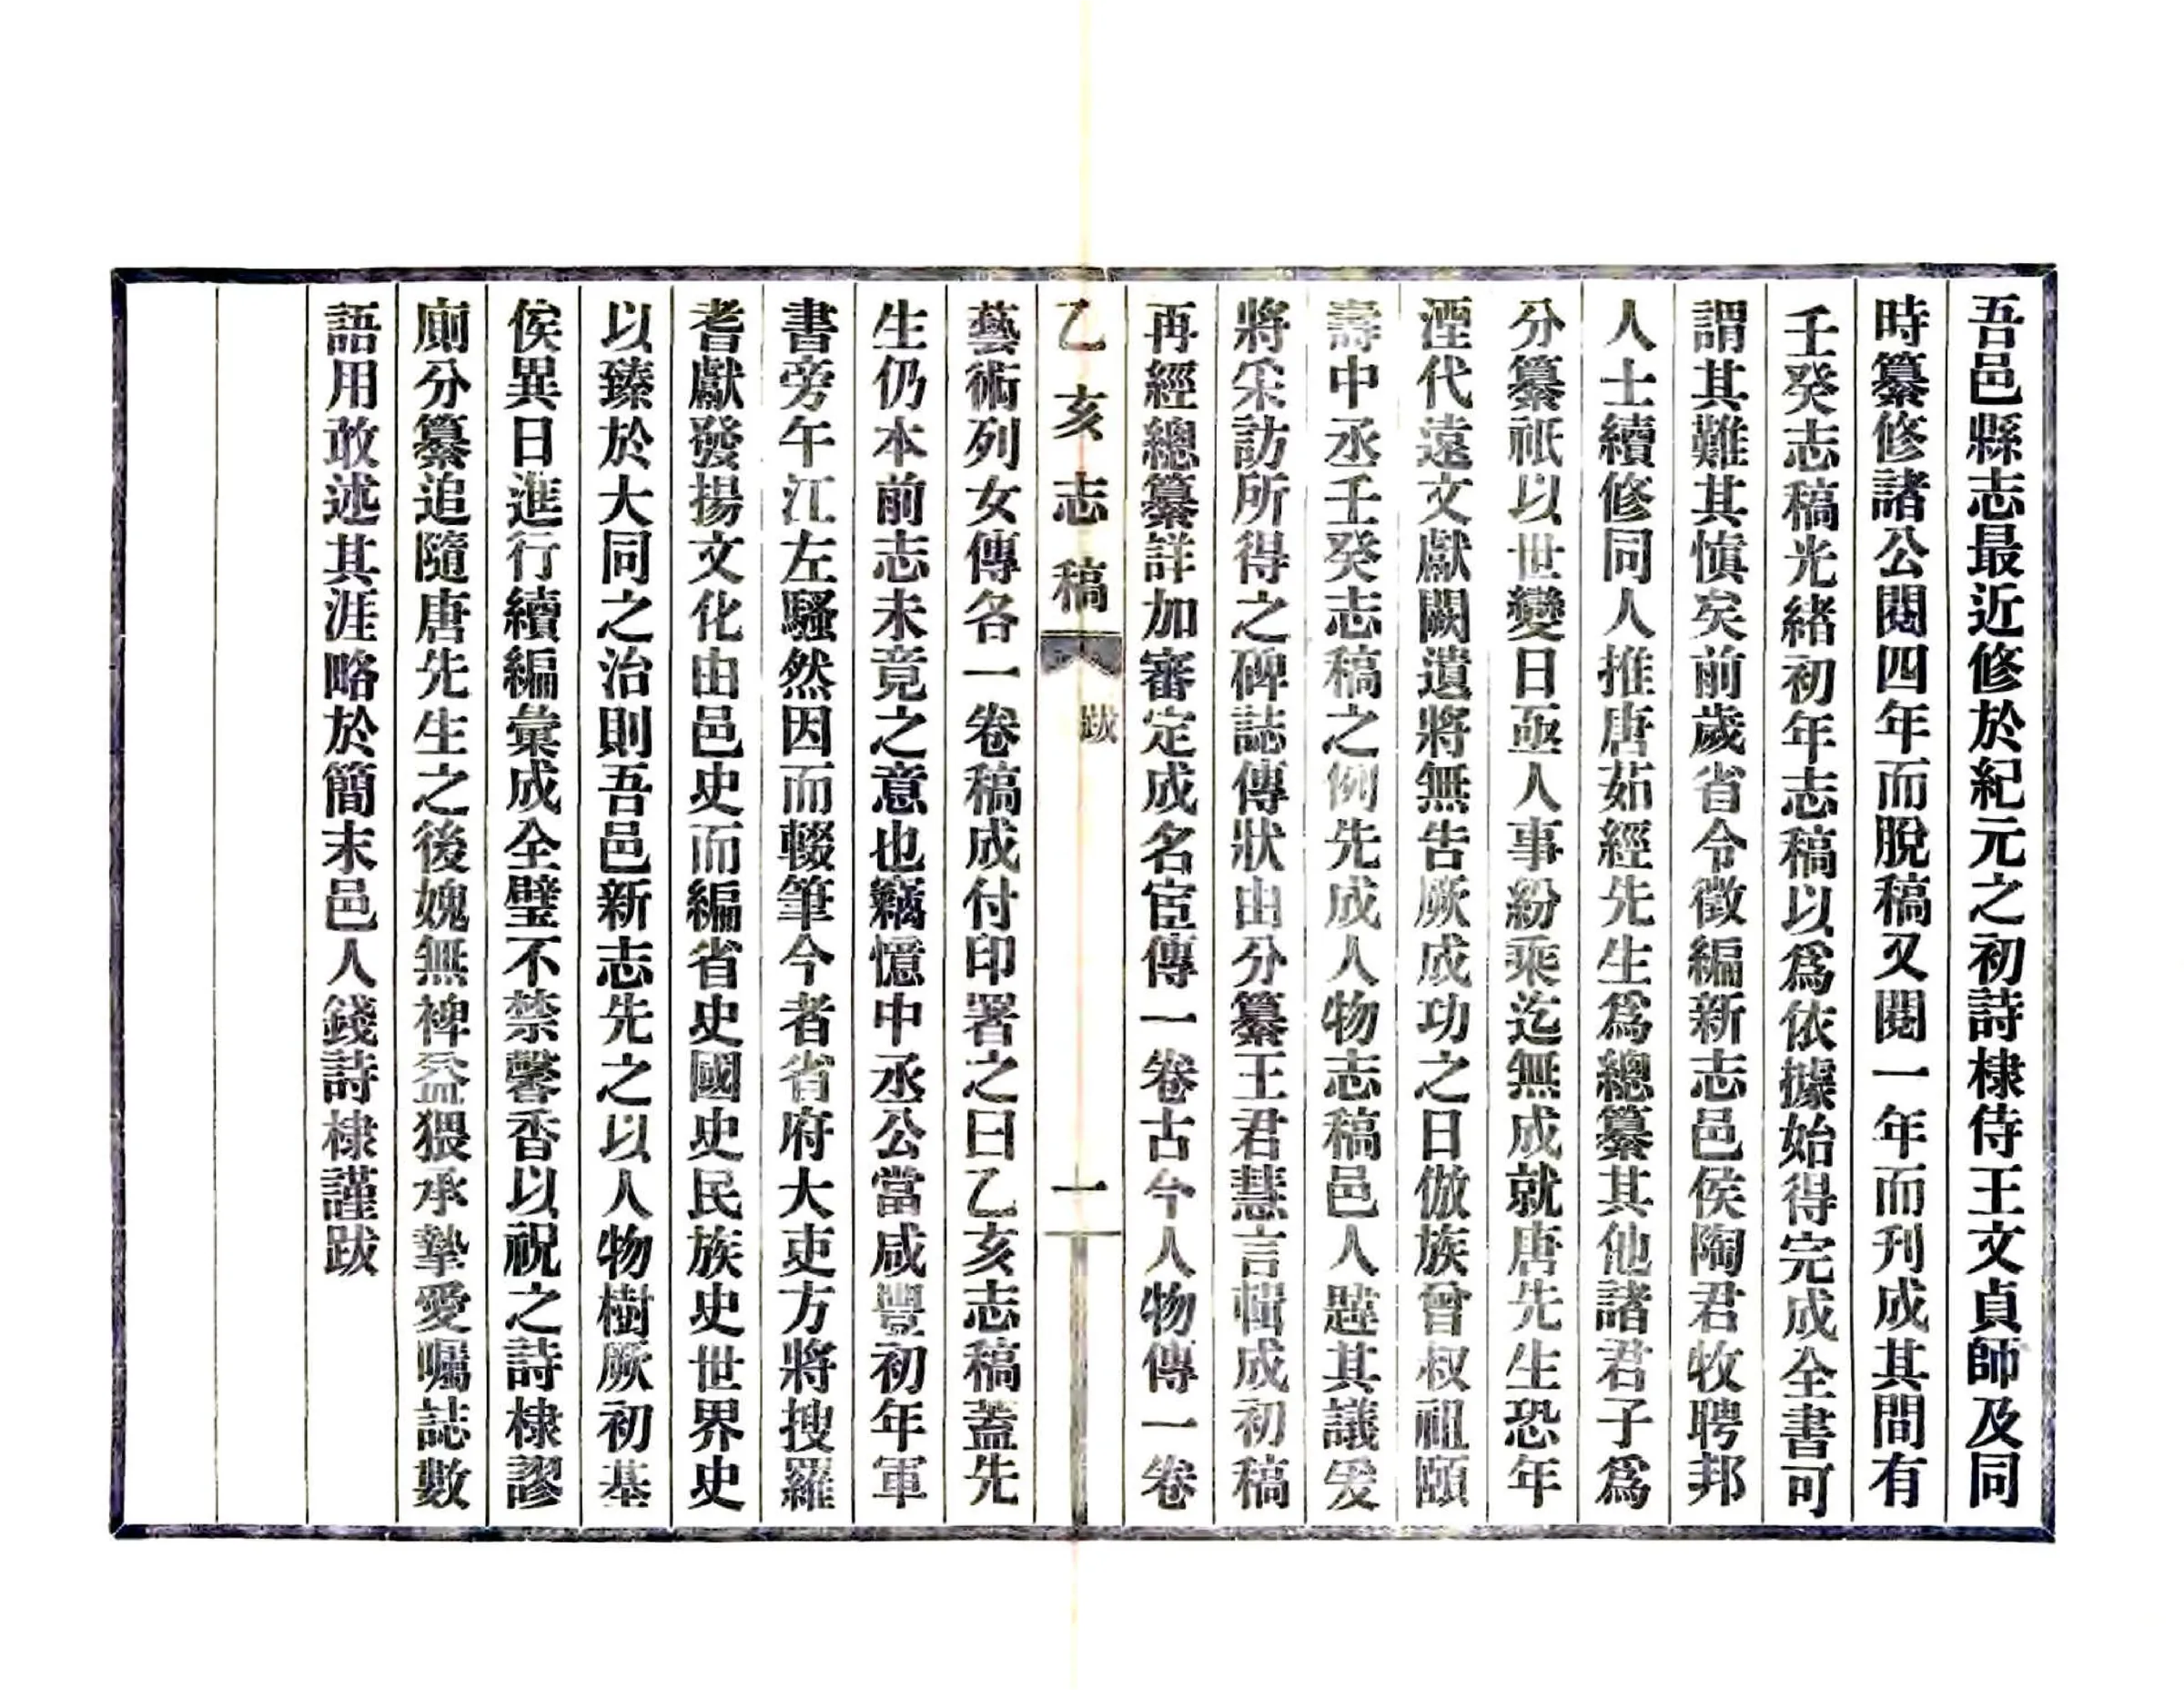 吾邑縣志最近修於紀元之初詩棣侍王文貞師及同
時纂修諸公閱四年而脫稿又閱一年而刊成其間有
壬癸志稿光緒初年志稿以爲依據始得完成全書可
謂其難其愼矣前歲省令徵編新志邑侯陶君牧聘邦
人士續修同人推唐茹經先生爲總纂其他諸君子爲
分纂祇以世變日亟人事紛乘迄無成就唐先生恐年
湮代遠文獻闕遺將無告厥成功之日倣族曾叔祖頤
壽中丞壬癸志稿之例先成人物志稿邑人韙其議爰
將采訪所得之碑誌傳狀由分纂王君慧言輯成初稿
再經總纂詳加審定成名宦傳一卷古今人物傳一卷
乙亥志稿 跋 一
藝術列女傳各一卷稿成付印署之曰乙亥志稿蓋先
生仍本前志未竟之意也竊憶中丞公當咸豐初年軍
書旁午江左騷然因而輟筆今者省府大吏方將搜羅
耆獻發揚文化由邑史而編省史國史民族史世界史
以臻於大同之治則吾邑新志先之以人物樹厥初基
俟異日進行續編彙成全璧不禁馨香以祝之詩棣謬
廁分纂追隨唐先生之後媿無裨益猥承摯愛囑誌數
語用敢述其涯略於簡末邑人錢詩棣謹跋